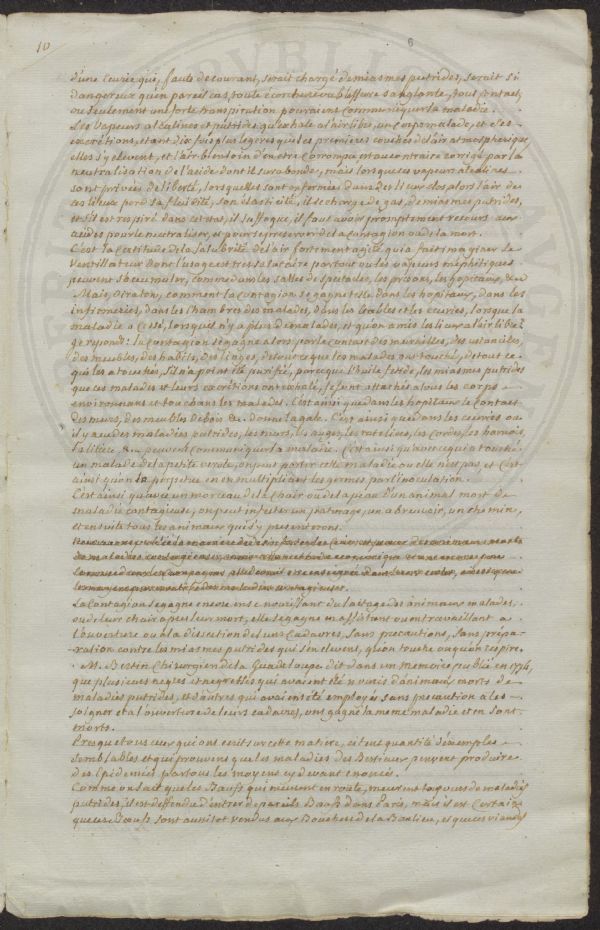 10
d'une Ecurie qui, faute de courant, serait chargé de miasmes putrides, serait si
dangereux qu'en pareil cas, toute écorchure ou blessure sanglante, tout contact,
ou seulement une forte transpiration pouraient communiquer la maladie.
Les Vapeurs alcalines et putrides qu'exhale à l'air libre, un Corps malade, et ses
excrétions, etant dix fois plus légeres que les premieres couches de l'air atmospherique,
elles s'y elevent, et l'air bien loin d'en etre Corrompu est au contraire corrigé par la
neutralisation de l'acide dont il surabonde, mais lorsque ces vapeurs alcalines
sont privées de liberté, lorsqu'elles sont enfermées dans des lieux clos alors l'air de
ces lieux perd sa fluidité, son élasticité, il se charge de gas, de miasmes putrides,
et s'il est respiré dans cet etat, il suffoque, il faut avoir promptement recours aux
acides pour le neutraliser, et pour se preserver de la contagion ou de la mort.
C'est la Certitude de la salubrité de l'air fortement agité qui a fait imaginer le
Ventilateur dont l'usage est très salutaire partout ou les vapeurs méphitiques
peuvent s'accumuler, comme dans les salles de spectacles, les prisons, les hopitaux, &c
Mais, dira-t'on, comment la Contagion se gagne t'elle dans les hopitaux, dans les
infirmeries, dans les Chambres des malades, dans les Etables et les écuries, lorsque la
maladie a Cessé, lorsqu'il n'y a plus de malades, et qu'on a mis les lieux à l'air libre?
Je répond: la Contagion se gagne alors par le Contact des murailles, des ustanciles,
des meubles, des habits, des linges, de tout ce que les malades ont touché, de tout ce
qui les a touchés, s'il n'a point été purifié, parceque l'huile fetide, les miasmes putrides
que ces malades et leurs excrétions ont exhalé, se sont attachés à tous les corps
environnans et touchans les malades. C'est ainsi que dans les hopitaux le Contact
des murs, des meubles de bois &c. donne la gale. C'est ainsi que dans les ecuries ou
il y a eu des maladies putrides, les murs, l'auge, les rateliers, les Cordes, les harnois,
la litiere, &c. peuvent Communiquer la maladie. C'est ainsi qu'avec ce qui a touché
un malade de la petite verole, on peut porter cette maladie ou elle n'est pas, et c'est
ainsi qu'on la perpetue en en multipliant les germes par l'inoculation.
C'est ainsi qu'avec un morceau de la Chair ou de la peau d'un animal mort de
maladie contagieuse, on peut infecter un paturage, un abreuvoir, un chemin,
et ensuite tous les animaux qui s'y presenteront.
La Contagion se gagne encore en se nourissant du laitage des animaux malades,
ou de leur chair après leur mort, elle se gagne en assistant ou en travaillant à
l'ouverture ou à la dissection de leurs Cadavres, sans precautions, sans prépa-
-ration contre les miasmes putrides qui s'en elevent, qu'on touche ou qu'on respire.
M. Bertin Chirurgien de la Guadeloupe dit dans un memoire publié en 1774,
que plusieurs negres et negresses qui avaient été nourris d'animaux morts de
maladies putrides, et d'autres qui avaient été employés sans precaution à les
soigner et a l'ouverture de leurs cadavres, ont gagné la meme maladie et en sont
morts.
Presque tous ceux qui ont ecrit sur cette matiere, citent quantité d'éxemples
semblables et qui prouvent que les maladies des Bestiaux peuvent produire
des Epidemies par tous les moyens cy devant enoncés.
Comme on sait que les Bœufs qui meurent en route, meurent toujours de maladies
putrides, il est deffendu d'entrer de pareils Bœufs dans Paris, mais il est Certain
que ces Bœufs sont aussitot vendus aux Bouchers de la Banlieue, et que ces viandes